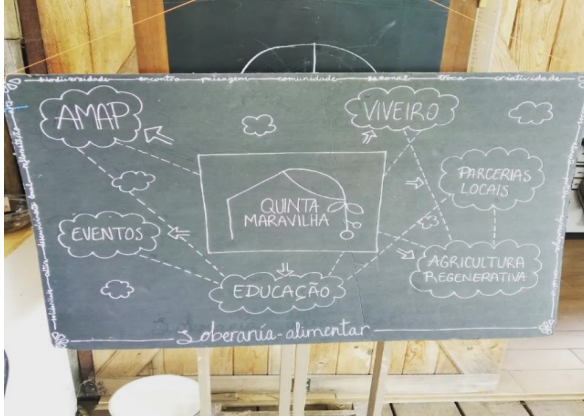 biodiversidade encontro paisagem comunidade sazonal troca criatividade
AMAP
VIVEIRO
PARCERIAS
LOCAIS
QUINTA
MARAVILHA
EVENTOS
AGRICULTURA
REGENERATIVA
EDUCAÇÃO
Soberania-alimentar